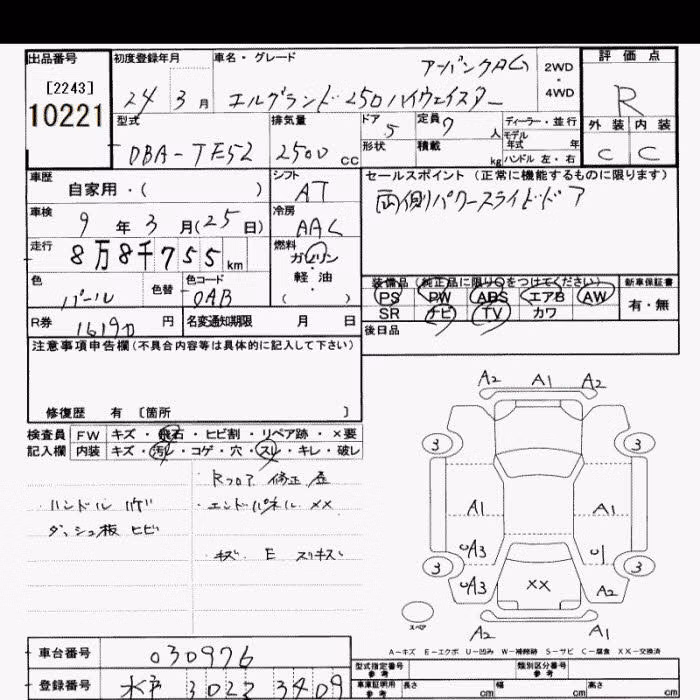 出品番号 初度登録年月 車名・グレード 評価点
[2243] アーバンクロム 2WD・4WD
10221 24年 3月 エルグランド 250ハイウェイスター R
型式 排気量 ドア 5 定員 7人 ディーラー・並行 外装 内装
形状 積載 kg モデル年式 年 ハンドル 左・右
DBA-TE52 2500cc C C
車歴 自家用・( ) シフト AT セールスポイント(正常に機能するものに限ります)
車検 9年3月(25日) 冷房 AAC 両側パワースライドドア
走行 8万8千755km 燃料 ガソリン・軽油 ( )
色 パール 色替 色コード QAB 装備品(純正品に限り○をつけてください) 新車保証書
PS PW ABS エアB AW 有・無
R券 16190円 名変通知期限 月 日 SR ナビ TV カワ
後日品
注意事項申告欄(不具合内容等は具体的に記入して下さい)
修復歴 有 〔箇所 〕
A2 A1 A2
検査員 FW キズ・飛石・ヒビ割・リペア跡・×要
記入欄 内装 キズ・汚レ・コゲ・穴・スレ・キレ・破レ
3 3
Rフロア 修正歴
ハンドル ハゲ ・エンドパネル ××
A1 A1
ダッシュ板 ヒビ
・キズ E スリキズ
UA3 U1
3 3
UA3 ×× A2
スペア A2 A1
A-キズ E-エクボ U-凹み W-補修跡 S-サビ C-腐食 XX-交換済
車台番号 030976 型式指定番号 参考 類別区分番号 参考
登録番号 水戸 302 ろ 3409 車庫証明用 参考 長さ cm 幅 cm 高さ cm